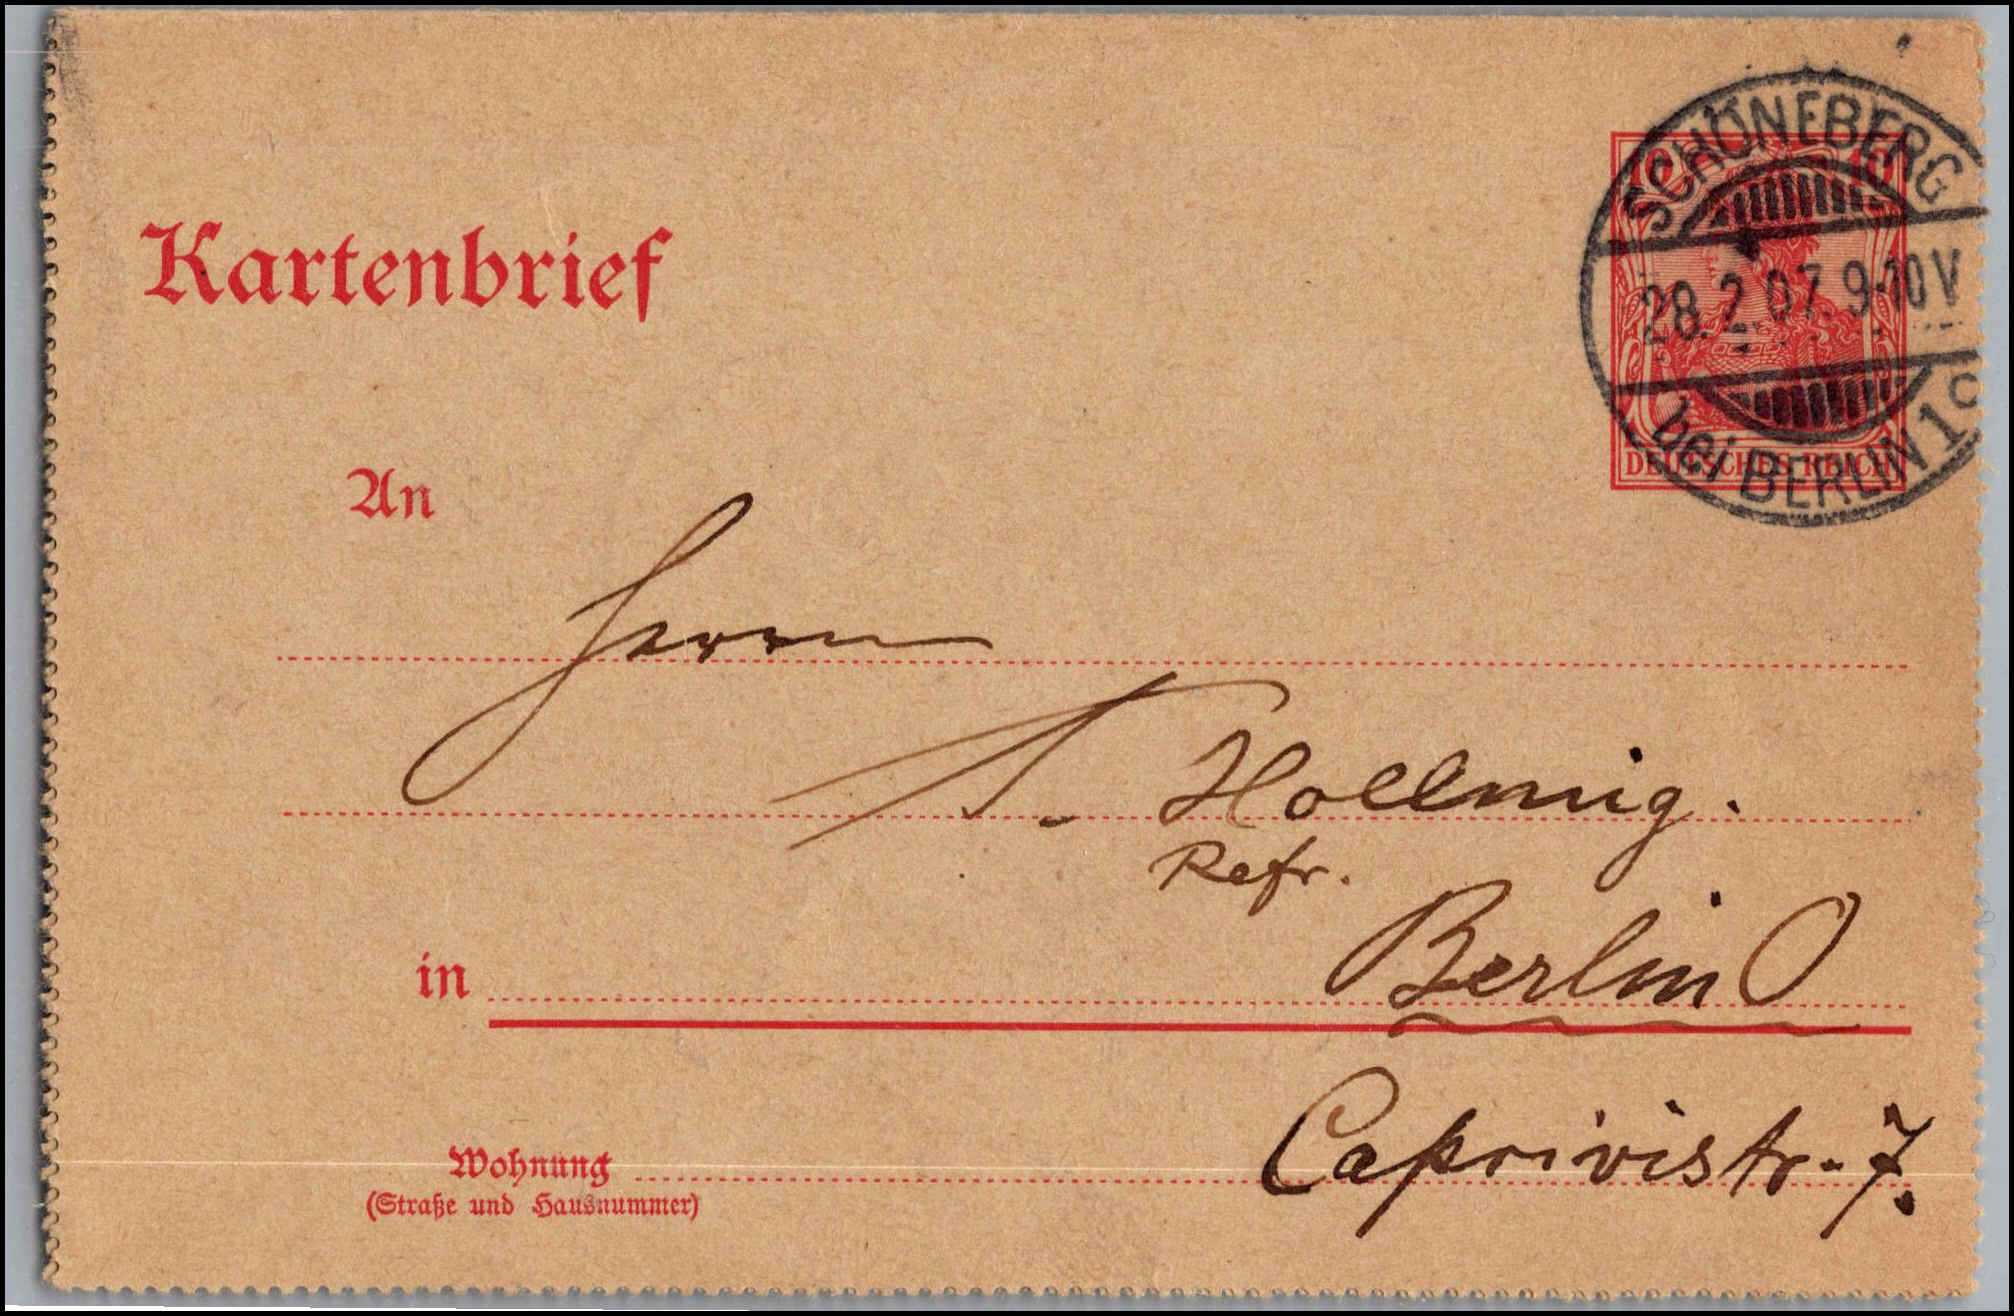 SCHÖNEBERG
28.2.07.9-10V
bei BERLIN 1
10 10
DEUTSCHES REICH
Kartenbrief
An
Herrn
A. Hollmig.
Refr.
in Berlin O
Caprivistr. 7.
Wohnung
(Straße und Hausnummer)